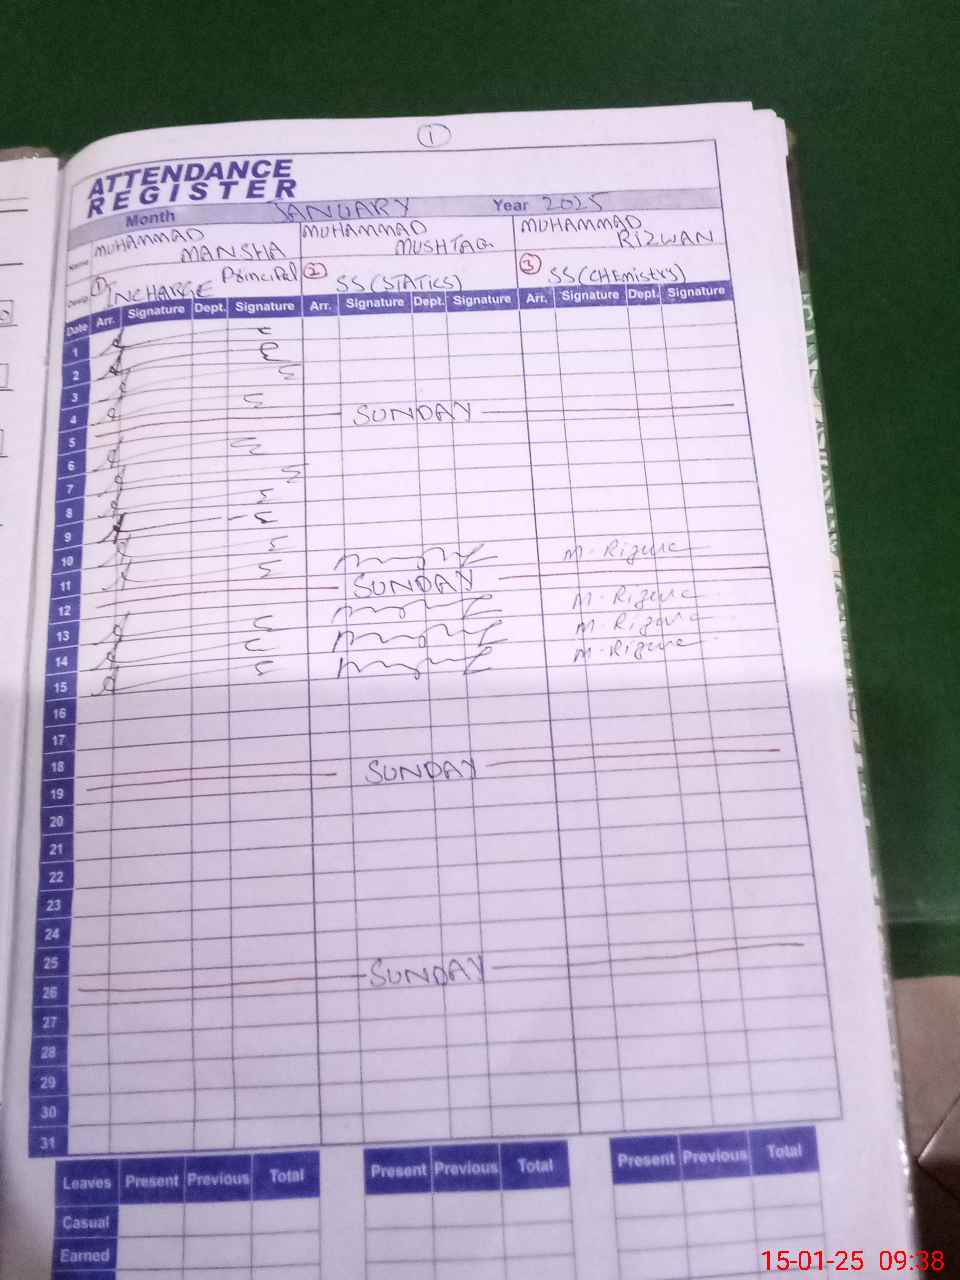 1
ATTENDANCE
REGISTER
Month JANUARY Year 2025
Name MUHAMMAD MANSHA MUHAMMAD MUSHTAQ MUHAMMAD RIZWAN
1 INCHARGE Principal 2 SS(STATICS) 3 SS(CHEMistry)
Date Arr. Signature Dept. Signature Arr. Signature Dept. Signature Arr. Signature Dept. Signature
1
2
3
4 SUNDAY
5
6
7
8
9
10
11 SUNDAY
12
13
14
15
16
17
18 SUNDAY
19
20
21
22
23
24
25 SUNDAY
26
27
28
29
30
31
Leaves Present Previous Total Present Previous Total Present Previous Total
Casual
Earned
15-01-25 09:38